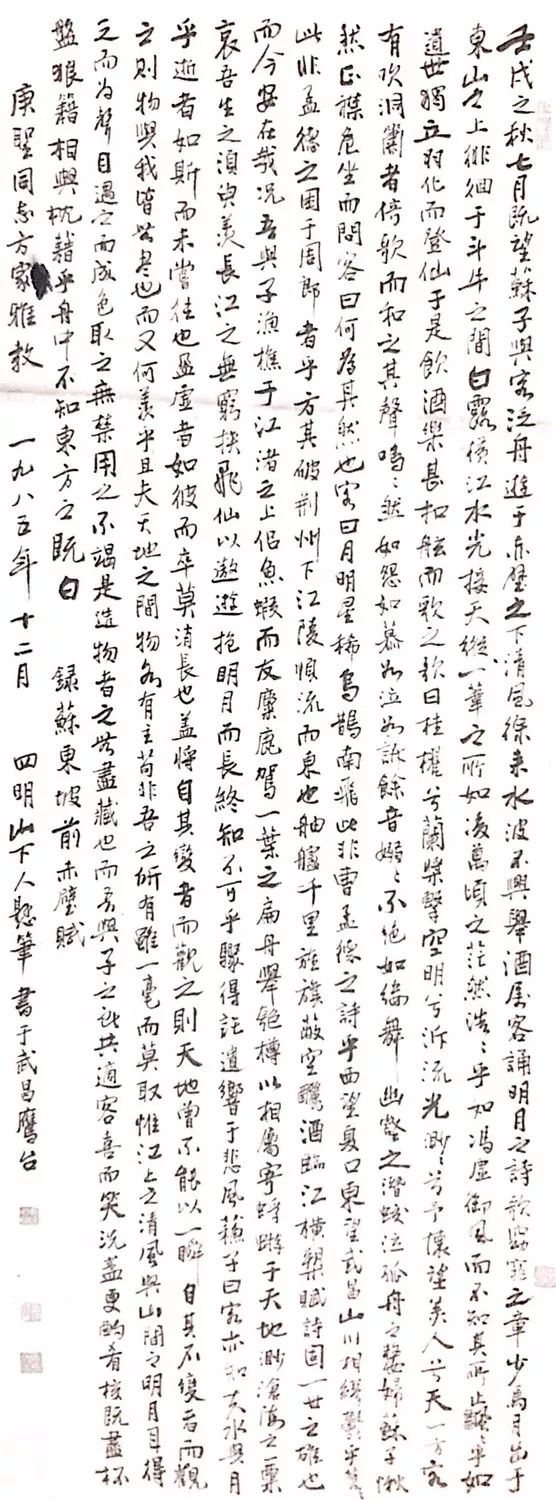 壬戌之秋七月既望蘇子與客泛舟遊于赤壁之下清風徐来水波不興舉酒屬客誦明月之詩歌窈窕之章少焉月出于
東山之上徘徊于斗牛之間白露橫江水光接天縱一葦之所如凌萬頃之茫然浩〻乎如馮虛御風而不知其所止飄〻乎如
遺世獨立羽化而登仙于是飲酒樂甚扣舷而歌之歌曰桂櫂兮蘭槳擊空明兮泝流光渺〻兮予懷望美人兮天一方客
有吹洞簫者倚歌而和之其聲嗚〻然如怨如慕如泣如訴餘音嫋〻不绝如縷舞幽壑之潛蛟泣孤舟之嫠婦蘇子愀
然正襟危坐而問客曰何為其然也客曰月明星稀烏鵲南飛此非曹孟德之詩乎西望夏口東望武昌山川相繆鬱乎蒼
此非孟德之困于周郎者乎方其破荆州下江陵順流而東也舳艫千里旌旗蔽空釃酒臨江橫槊賦詩固一世之雄也
而今安在哉况吾與子漁樵于江渚之上侣魚蝦而友麋鹿駕一葉之扁舟舉匏樽以相屬寄蜉蝣于天地渺滄海之一粟
哀吾生之須臾羡長江之無窮挾飛仙以遨遊抱明月而長終知不可乎驟得託遺響于悲風蘇子曰客亦知夫水與月
乎逝者如斯而未嘗往也盈虛者如彼而卒莫消長也盖將自其變者而觀之則天地曾不能以一瞬自其不變者而觀
之則物與我皆無盡也而又何羡乎且夫天地之間物各有主苟非吾之所有雖一毫而莫取惟江上之清風與山間之明月耳得
之而為聲目遇之而成色取之無禁用之不竭是造物者之無盡藏也而吾與子之所共適客喜而笑洗盞更酌肴核既盡杯
盤狼籍相與枕藉乎舟中不知東方之既白 録蘇東坡前赤壁賦
庚聖同志方家雅教 一九八五年十二月 四明山下人懸筆書于武昌鷹台